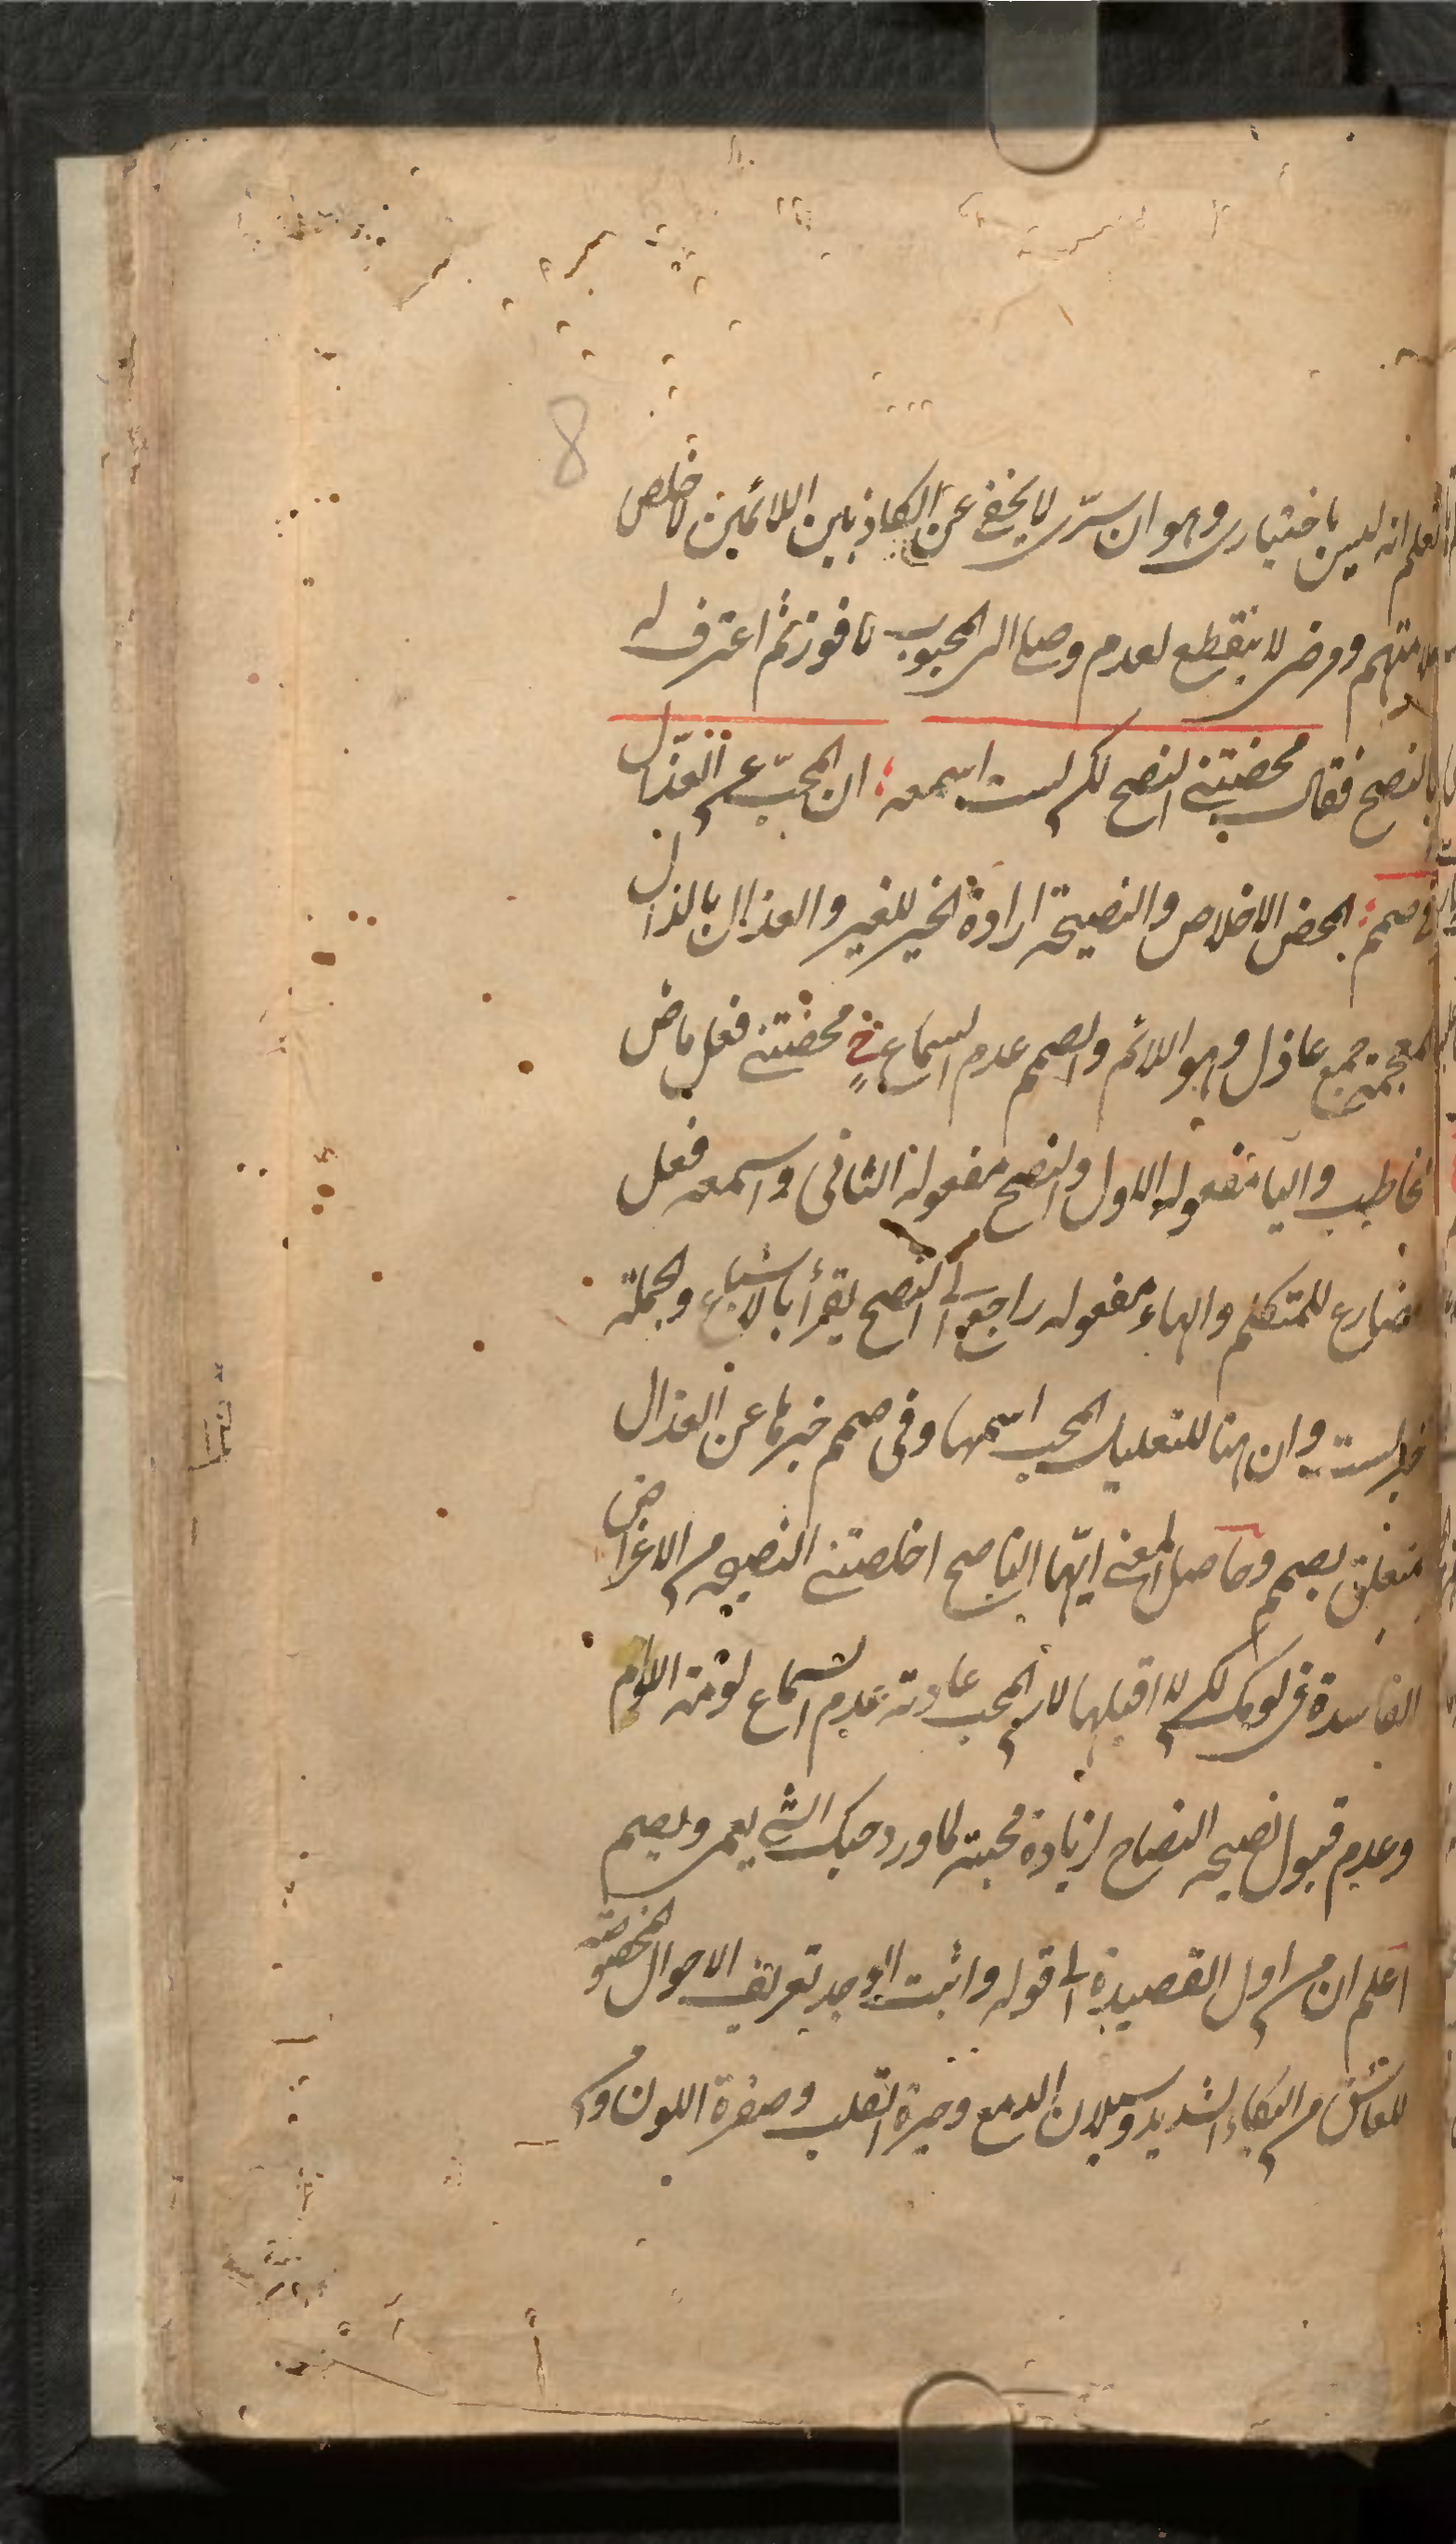 8
لتعلم انه ليس باختيارى وهو ان سرّى لا يخفى عن الكاذبين اللائمين لاخلص
ملامتهم ومرضى لا ينقطع لعدم وصلى الى المحبوب لافوز ثم اعترف له
بالنصح فقال محضتنى النصح لكن لست اسمعه ؛ ان المحبّ عن العذّال
فى صمم ؛ المحض الاخلاص والنصيحة ارادة الخير للغير والعذال بالذال
المعجمة جمع عاذل وهو اللائم والصمم عدم السماع محضتنى فعل ماض
مخاطب واليا مفعوله الاول والنصح مفعوله الثانى واسمعه فعل
مضارع للمتكلم والهاء مفعوله راجع الى النصح يقرأ بالاشباع والجملة
خبر لست وان هنا للتعليل المحب اسمها وفى صمم خبرها عن العذال
متعلق بصمم وحاصل المعنى ايّها الناصح اخلصتنى النصيحة من الاغراض
الفاسدة فى لومك لكن لا اقبلها لان المحب عادته عدم السماع لومة اللوام
وعدم قبول نصيحة النصاح لزيادة محبته كما ورد حبك الشئ يعمى ويصم
اعلم ان من اول القصيدة الى قوله واثبت الوجد تعريف الاحوال المخصوصة
للعاشق من البكاء الشديد وسيلان الدمع وحيرة القلب وصفرة اللون